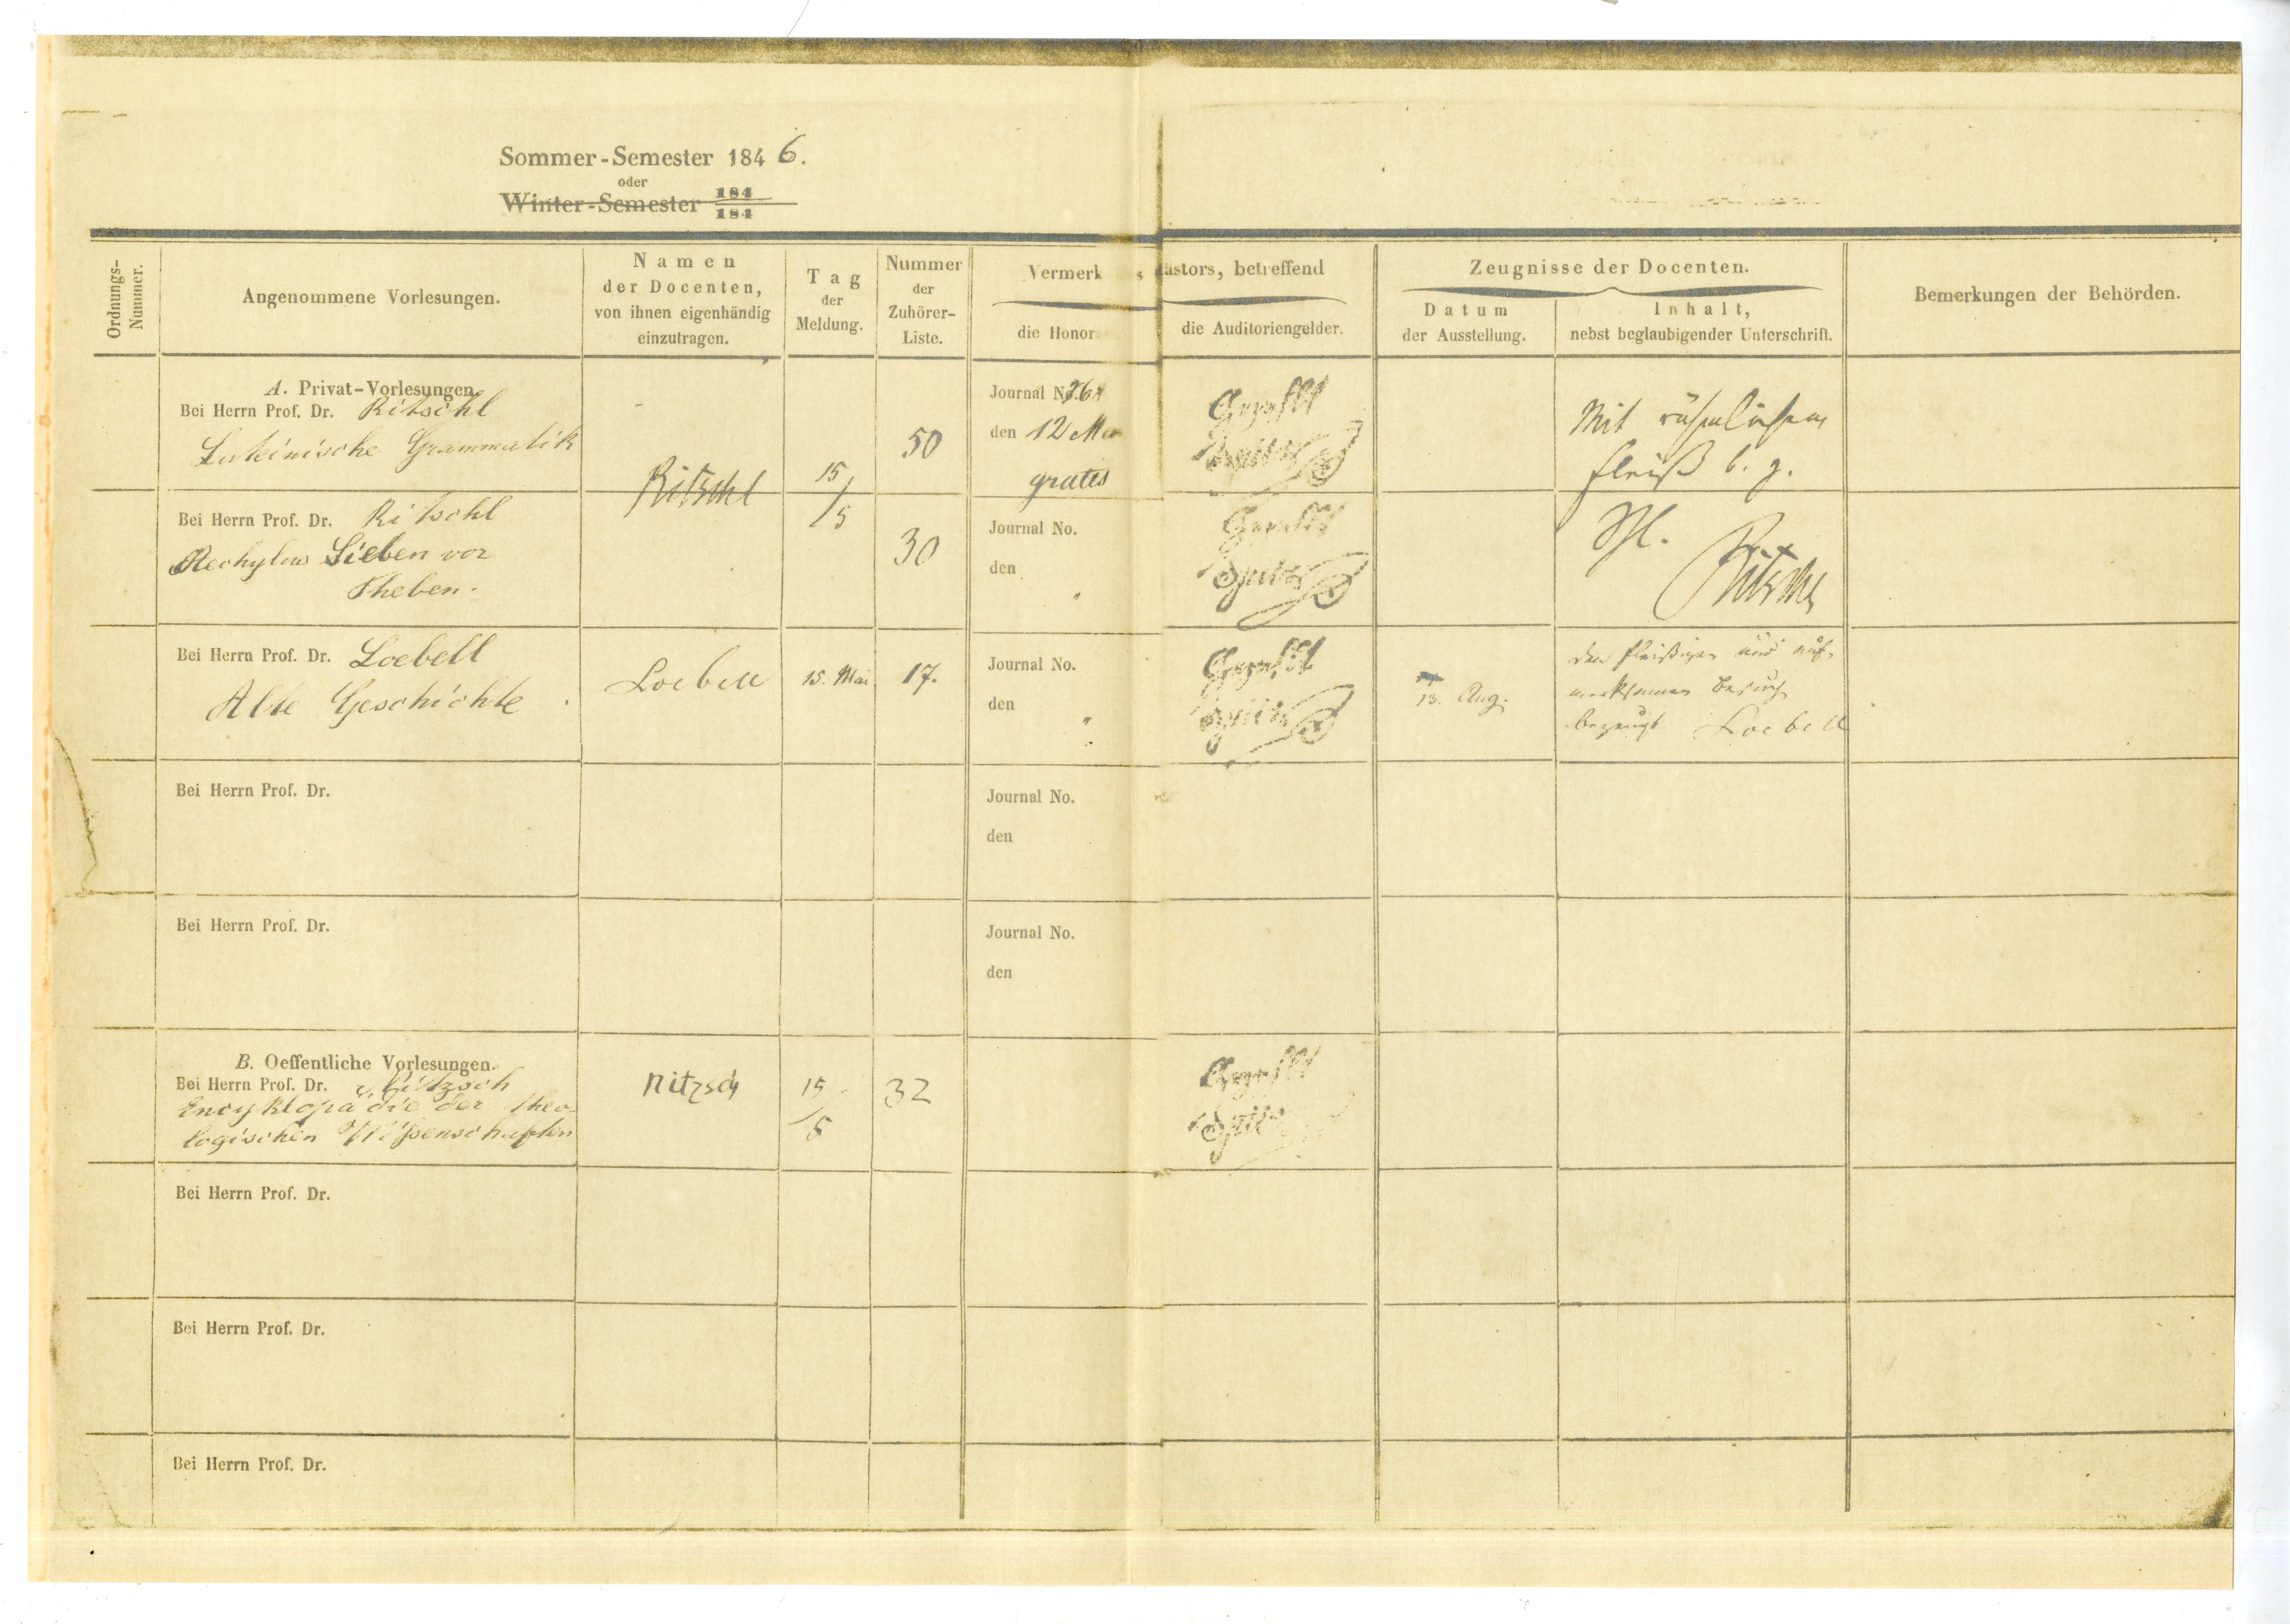 Sommer-Semester 184 6.
oder
Winter-Semester 184
184
Ordnungs-
Nummer.
Angenommene Vorlesungen.
Namen
der Docenten,
von ihnen eigenhändig
einzutragen.
Tag
der
Meldung.
Nummer
der
Zuhörer-
Liste.
Vermerk s astors, betreffend
die Honor
die Auditoriengelder.
Zeugnisse der Docenten.
Datum
der Ausstellung.
Inhalt,
nebst beglaubigender Unterschrift.
Bemerkungen der Behörden.
A. Privat-Vorlesungen.
Bei Herrn Prof. Dr. Ritschl
Lateinische Grammatik
Ritschl
15/5
50
Journal No.
den 12 Ma
gratis
Mit rühmlichem
Fleiß b. g.
Bei Herrn Prof. Dr. Ritschl
Aechylus Sieben vor
Theben.
30
Journal No.
den
"
Ritschl
Bei Herrn Prof. Dr. Loebell
Alte Geschichte
Loebell
15. Mai
17.
Journal No.
den
"
13. Aug.
den fleißigen und auf-
merksamen Besuch
bezeugt Loebell
Bei Herrn Prof. Dr.
Journal No.
den
Bei Herrn Prof. Dr.
Journal No.
den
B. Oeffentliche Vorlesungen.
Bei Herrn Prof. Dr. Nitzsch
Encyklopädie der theo-
logischen Wißenschaften
Nitzsch
15/5
32
Bei Herrn Prof. Dr.
Bei Herrn Prof. Dr.
Bei Herrn Prof. Dr.